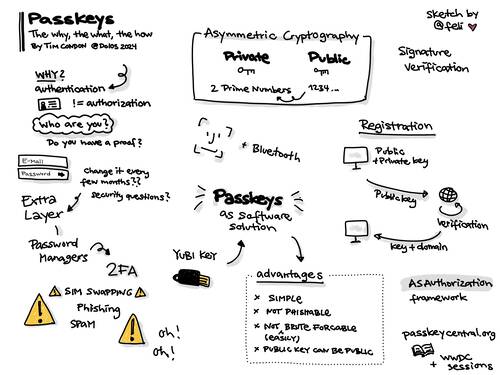 Passkeys
The why, the what, the how
By Tim Condon @Dolos 2024
WHY?
authentication
!= authorization
Who are you?
Do you have a proof?
E-Mail
Password
change it every
few months??
security questions?
Extra
Layer
Password
Managers
2FA
SIM SWAPPING
Phishing
SPAM
oh!
oh!
Asymmetric Cryptography
Private
Public
2 Prime Numbers
1234...
+ Bluetooth
Passkeys
as software
solution
YUBI KEY
advantages
× SIMPLE
× NOT PHISHABLE
× NOT BRUTE FORCABLE
(EASILY)
× PUBLIC KEY CAN BE PUBLIC
sketch by
@feli
Signature
Verification
Registration
Public
+Private key
Public key
verification
key + domain
ASAuthorization
framework
passkeycentral.org
+ WWDC
sessions